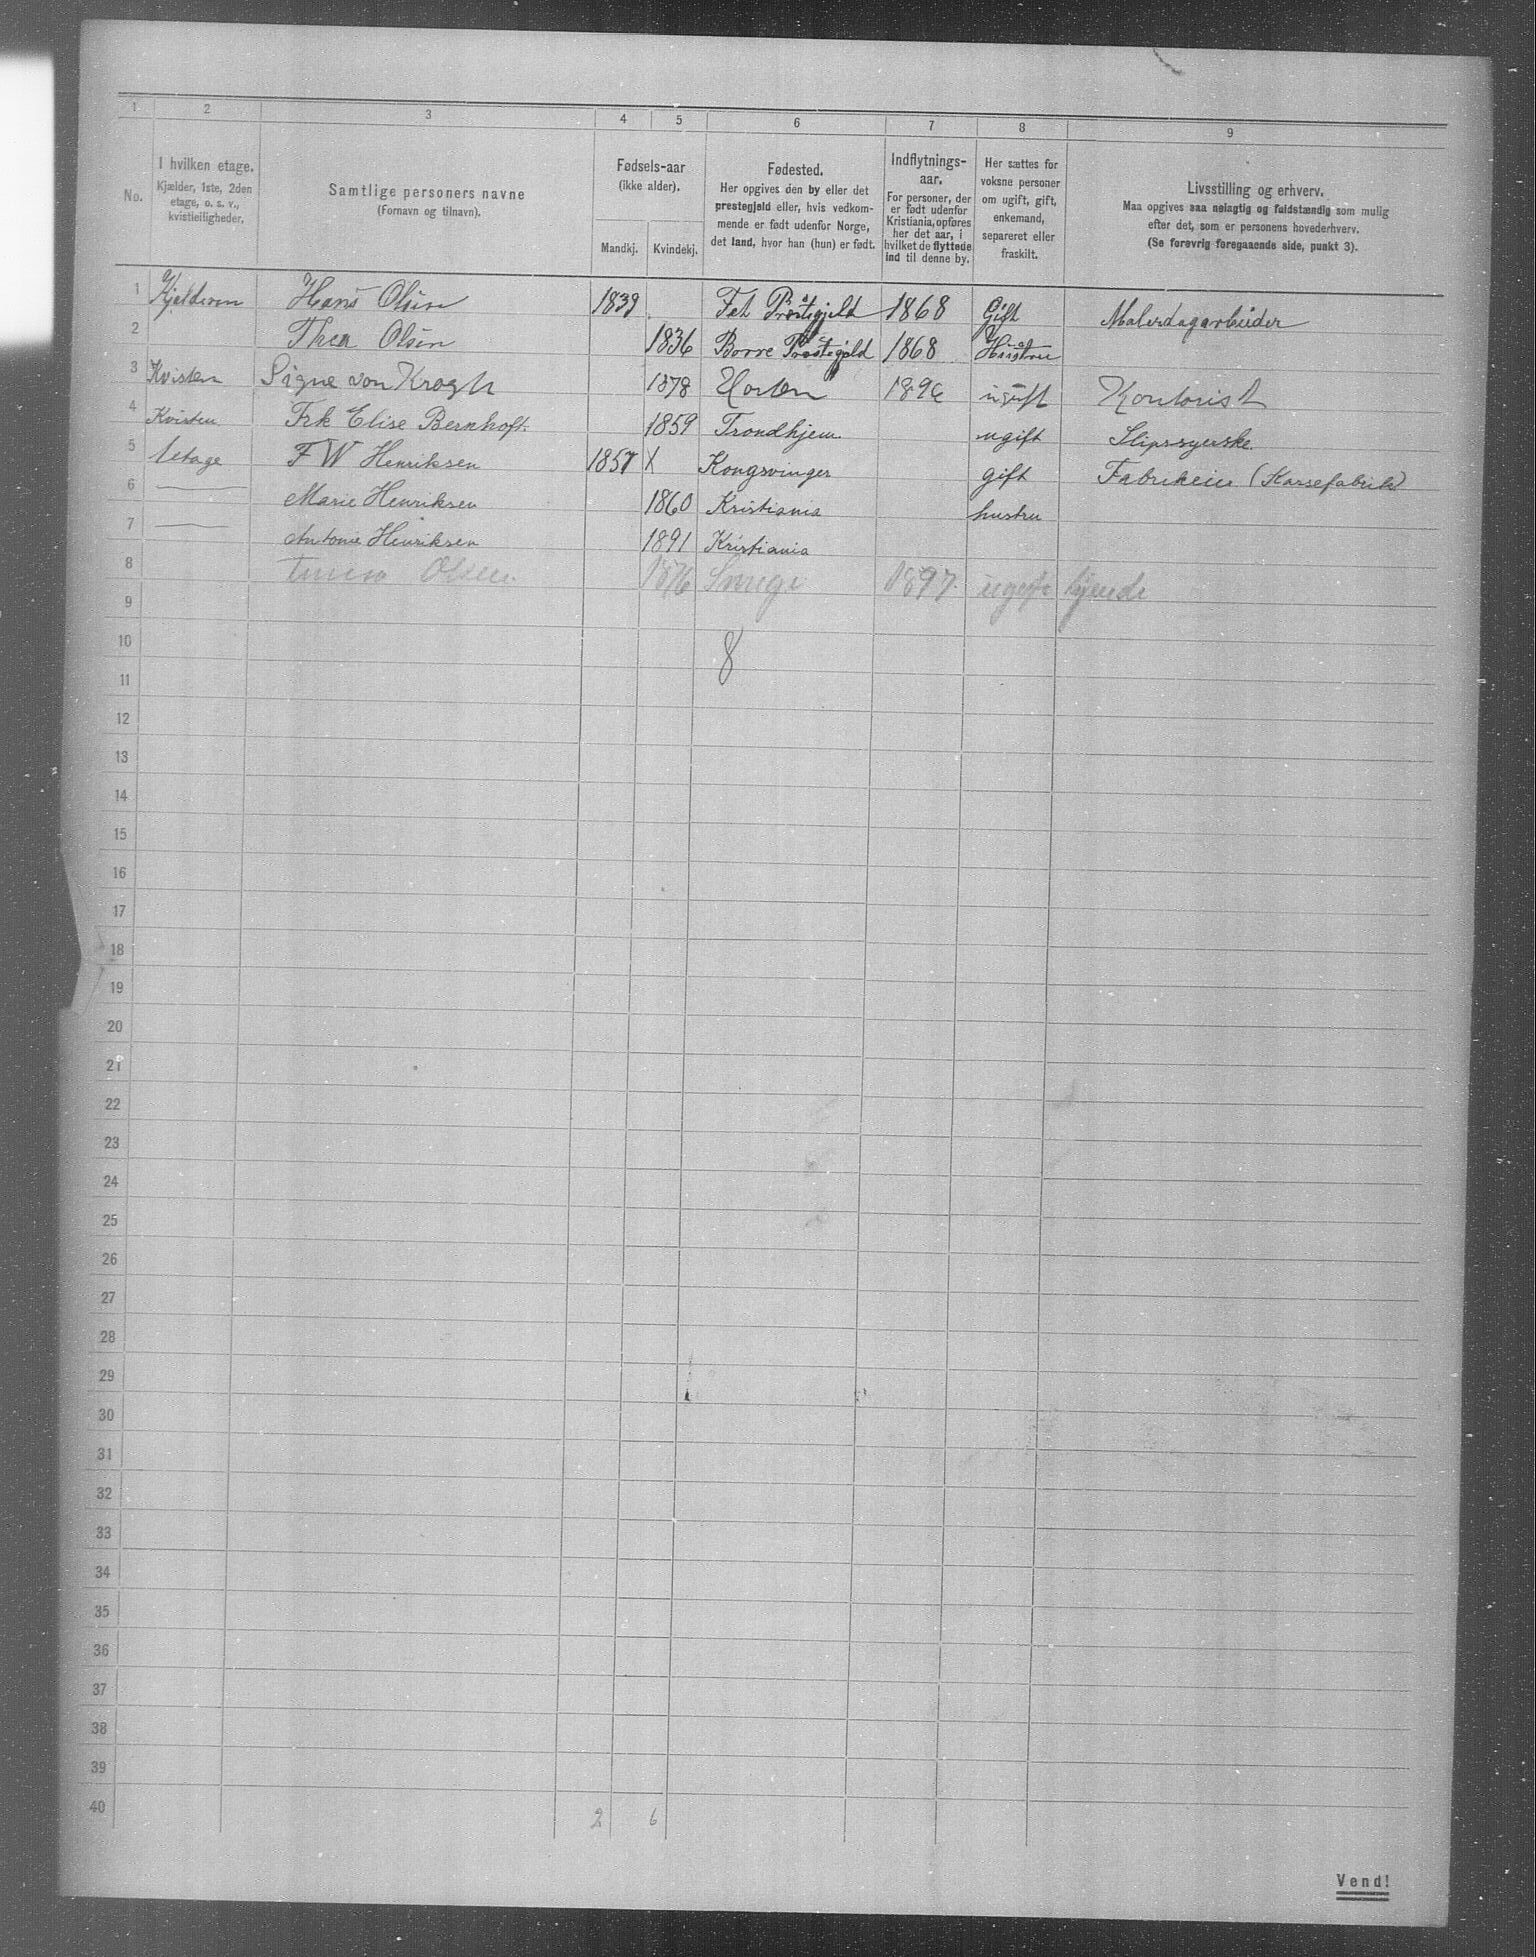 1 2 3 4 5 6 7 8 9
No.
I hvilken etage.
Kjælder, 1ste, 2den
etage, o. s. v.,
kvistleiligheder.
Samtlige personers navne
(Fornavn og tilnavn).
Fødsels-aar
(ikke alder).
Mandkj. Kvindekj.
Fødested.
Her opgives den by eller det
prestegjeld eller, hvis vedkom-
mende er født udenfor Norge,
det land, hvor han (hun) er født.
Indflytnings-
aar.
For personer, der
er født udenfor
Kristiania, opføres
her det aar, i
hvilket de flyttede
ind til denne by.
Her sættes for
voksne personer
om ugift, gift,
enkemand,
separeret eller
fraskilt.
Livsstilling og erhverv.
Maa opgives saa nøiagtig og fuldstændig som mulig
efter det, som er personens hovederhverv.
(Se forøvrig foregaaende side, punkt 3).
1 Kjelderen Hans Olsen 1839 Fet Prestegjeld 1868 Gift Malerdagarbeider
2 Thea Olsen 1836 Borre Prestegjeld 1868 Hustru
3 Kvisten Signe von Krogh 1878 Horten 1896 ugift Kontorist
4 Kvisten Frk Elise Bernhoft. 1859 Trondhjem ugift Slipssyerske.
5 1 etage F W Henriksen 1857 X Kongsvinger gift Fabrikeier
6 Marie Henriksen 1860 Kristiania hustru
7 Antonie Henriksen 1891 Kristiania
8 Olsen 1876 1897. ugift tjende
9
10 8
11
12
13
14
15
16
17
18
19
20
21
22
23
24
25
26
27
28
29
30
31
32
33
34
35
36
37
38
39
40 2 6
Vend!